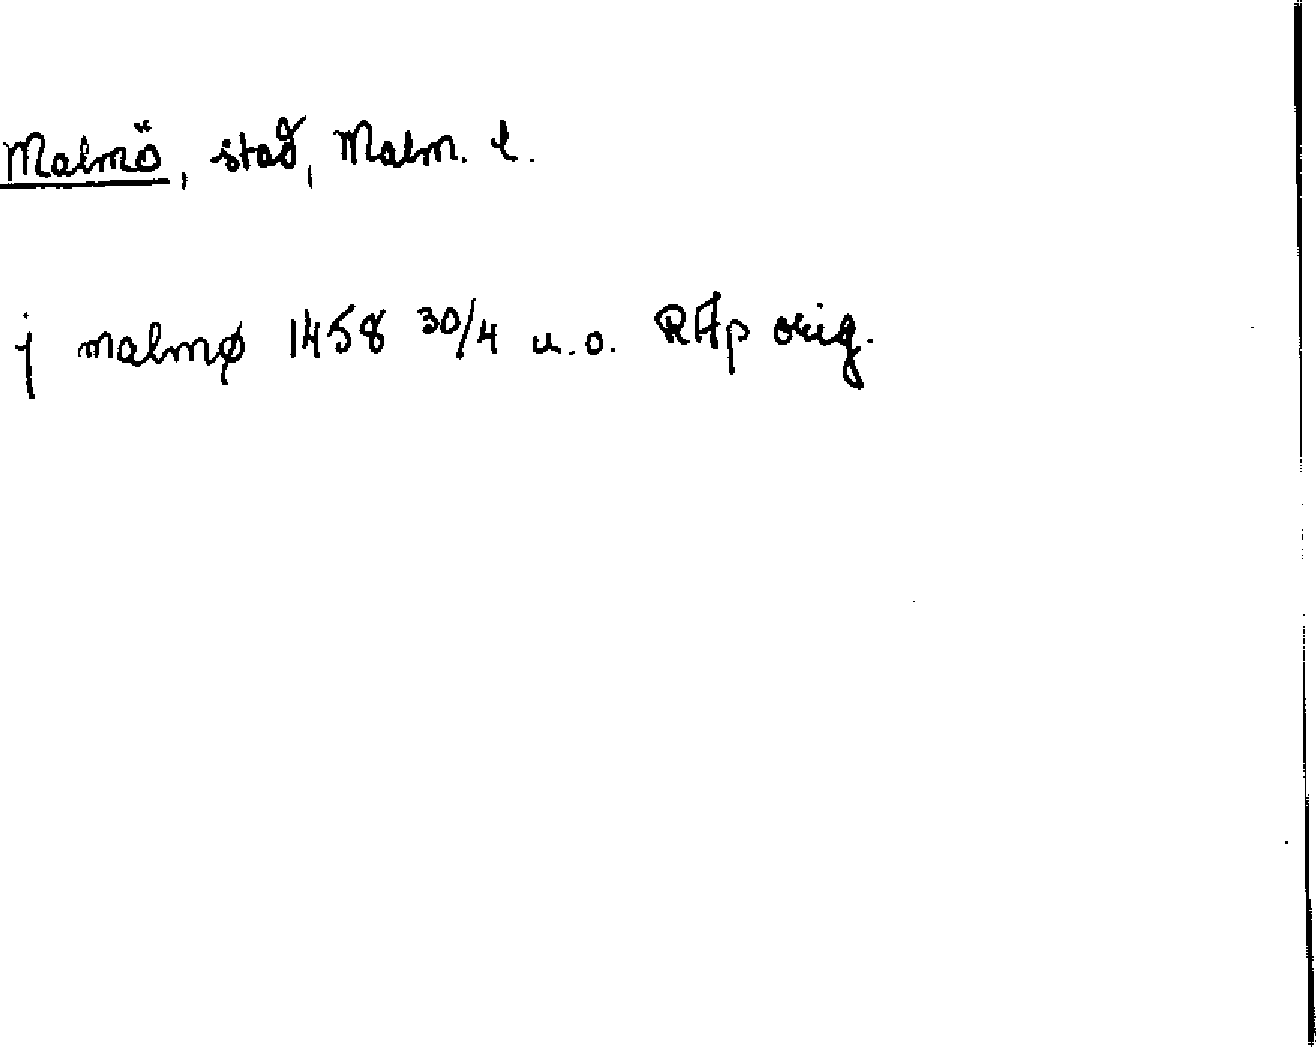 Malmö, stad, Malm. l.
j malmø 1458 30/4 u.o. RAp orig.